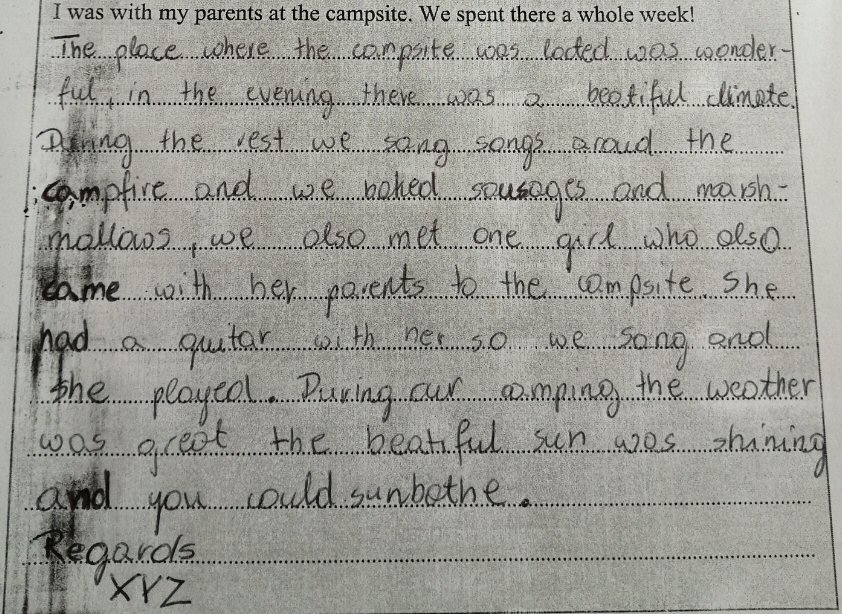 I was with my parents at the campsite. We spent there a whole week!
The place where the campsite was locted was wonder-
ful, in the evening there was a beatiful climate.
During the rest we sang songs aroud the
campfire and we baked sausages and marsh-
mallows, we also met one girl who also
came with her parents to the campsite. She
had a guitar with her so we sang and
she played. During our camping the weather
was great the beatiful sun was shining
and you could sunbathe.
Regards
XYZ